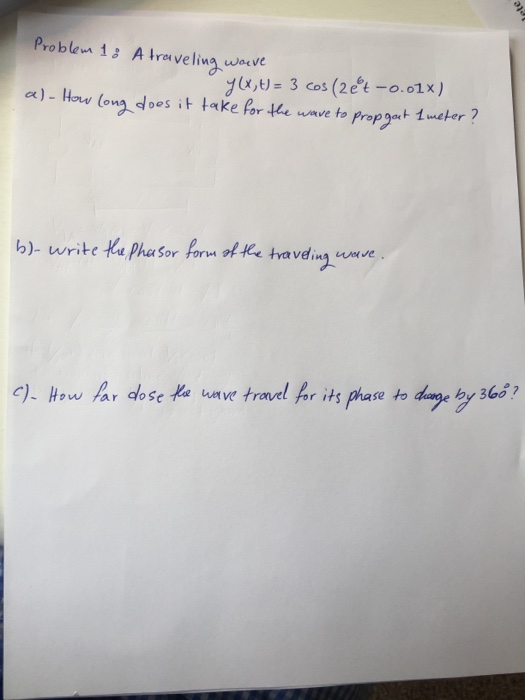 Problem 1: A traveling wave
y(x,t) = 3 cos(2e⁶t - 0.01x)
a)- How long does it take for the wave to propgat 1 meter?
b)- write the phasor form of the traveling wave.
c)- How far dose the wave travel for its phase to change by 360°?